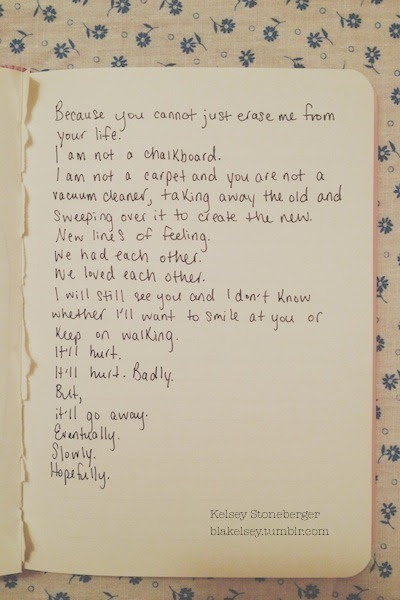 Because you cannot just erase me from
your life.
I am not a chalkboard.
I am not a carpet and you are not a
vacuum cleaner, taking away the old and
sweeping over it to create the new.
New lines of feeling.
We had each other.
We loved each other.
I will still see you and I don't know
whether I'll want to smile at you or
keep on walking.
It'll hurt.
It'll hurt. Badly.
But,
it'll go away.
Eventually.
Slowly.
Hopefully.
Kelsey Stoneberger
blakelsey.tumblr.com